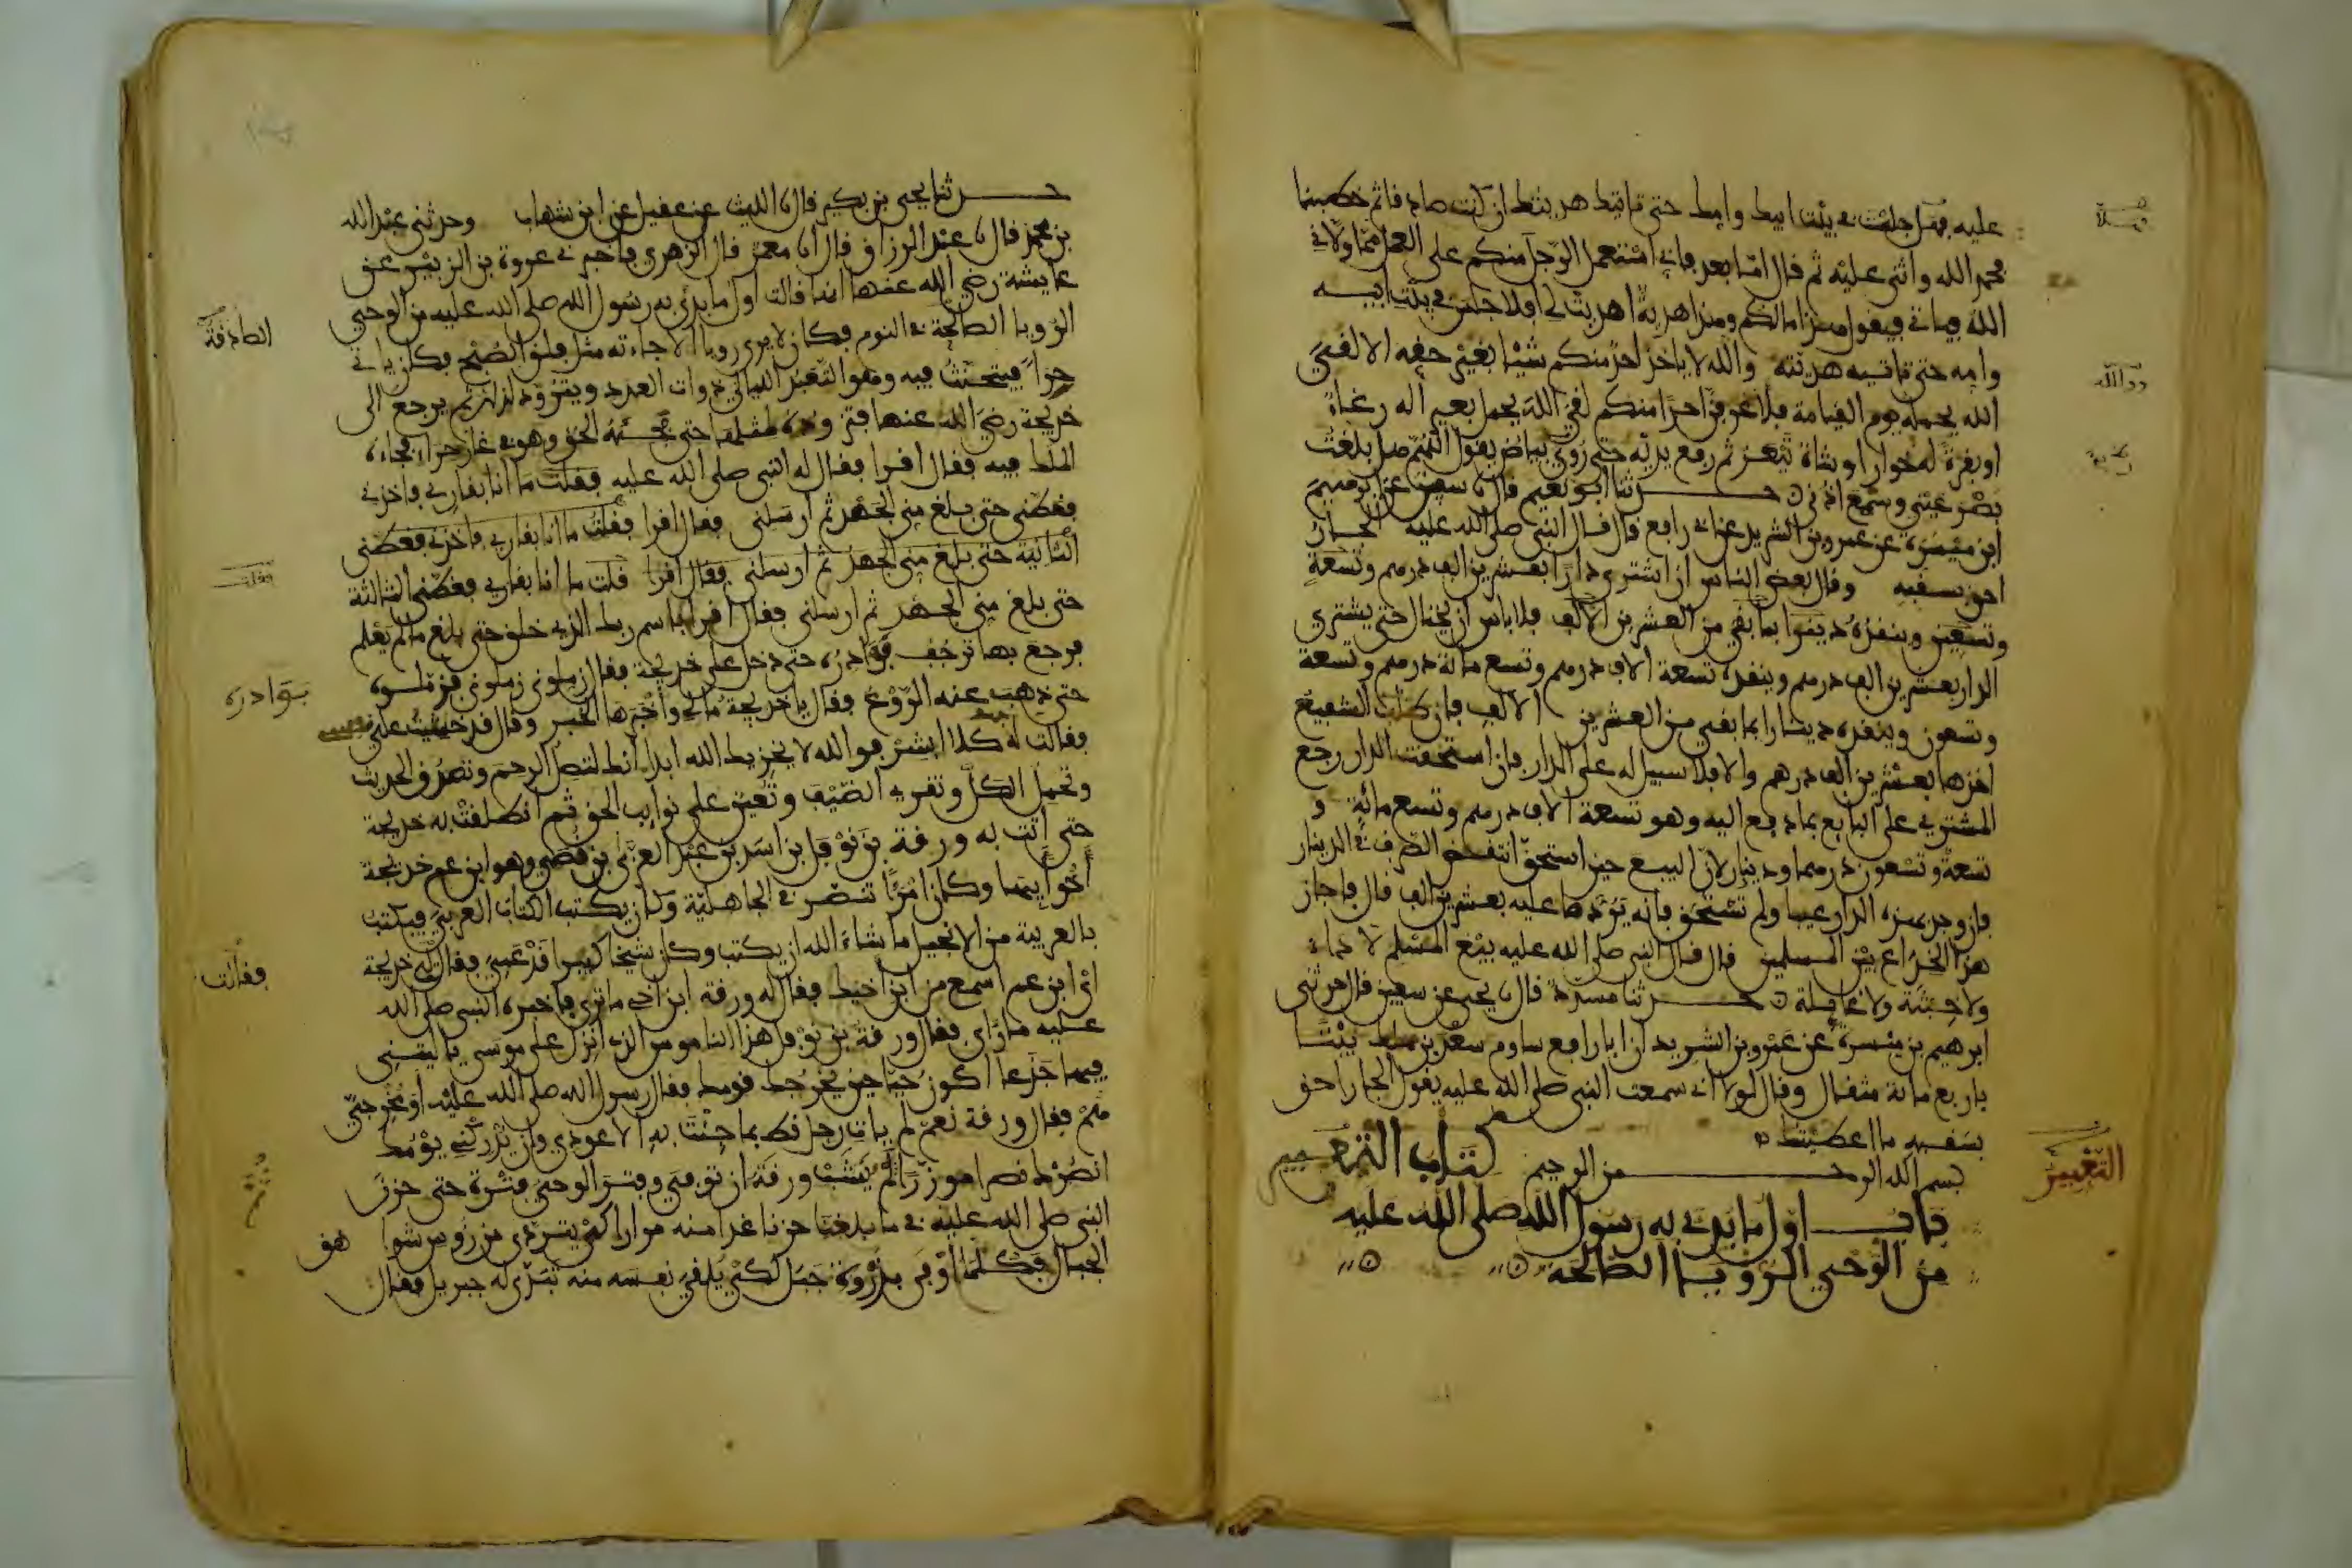 عليه فهل جلست في بيت ابيك وامك حتى تاتيك هديتك ان كنت صادقا ثم خطبنا
فحمد الله واثنى عليه ثم قال اما بعد فاني استعمل الرجل منكم على العمل مما ولاني
الله فياتي فيقول هذا مالكم وهذا هدية اهديت لي افلا جلس في بيت ابيه
وامه حتى تاتيه هديته والله لا ياخذ احد منكم شيئا بغير حقه الا لقي
الله يحمله يوم القيامة فلا عرفن احدا منكم لقي الله يحمل بعيرا له رغاء
او بقرة لها خوار او شاة تيعر ثم رفع يديه حتى رؤي بياض يقول اللهم هل بلغت
بصر عيني وسمع اذني حدثنا ابو نعيم قال نا سفين عن ابرهيم
ابن ميسرة عن عمرو بن الشريد عن ابي رافع قال قال النبي صلى الله عليه الجار
احق بسقبه وقال بعض الناس ان اشترى دارا بعشرين الف درهم وتسعة
وتسعين وينقده دينرا بما بقي من العشرين الالف فلا باس ان يحتال حتى يشتري
الدار بعشرين الف درهم وينقده تسعة الاف درهم وتسع مائة درهم وتسعة
وتسعون وينقده دينارا بما بقي من العشرين الالف فان طلب الشفيع
اخذها بعشرين الف درهم والا فلا سبيل له على الدار فان استحقت الدار رجع
المشتري على البايع بما دفع اليه وهو تسعة الاف درهم وتسع مائة و
تسعة وتسعون درهما ودينار لان البيع حين استحق انتقض الصرف في الدينار
فان وجد بهذه الدار عيبا ولم تستحق فانه يردها عليه بعشرين الف قال فاجاز
هذا الخداع بين المسلمين قال قال النبي صلى الله عليه بيع المسلم لا داء
ولا خبثة ولا غايلة حدثنا مسدد قال نا يحيى عن سفين قال حدثني
ابرهيم بن ميسرة عن عمرو بن الشريد ان ابا رافع ساوم سعد بن ملك بيتا
باربع مائة مثقال وقال لولا اني سمعت النبي صلى الله عليه يقول الجار احق
بسقبه ما اعطيتك
بسم الله الرحمن الرحيم كتاب التعبير
التعبير
باب اول ما بدئ به رسول الله صلى الله عليه
من الوحي الرؤيا الصالحة
حدثنا يحيى بن بكير قال نا الليث عن عقيل عن ابن شهاب وحدثني عبد الله
بن محمد قال نا عبد الرزاق قال انا معمر قال الزهري فاخبرني عروة بن الزبير عن
عايشة رضي الله عنها انها قالت اول ما بدئ به رسول الله صلى الله عليه من الوحي
الرويا الصالحة في النوم فكان لا يرى رويا الا جاءته مثل فلق الصبح فكان ياتي
الصادقة
حراء فيتحنث فيه وهو التعبد الليالي ذوات العدد ويتزود لذلك ثم يرجع الى
خديجة رضي الله عنها فتزوده لمثلها حتى فجئه الحق وهو في غار حراء فجاءه
الملك فيه فقال اقرا فقال له النبي صلى الله عليه فقلت ما انا بقاري فاخذني
فغطني حتى بلغ مني الجهد ثم ارسلني فقال اقرا فقلت ما انا بقاري فاخذني فغطني
الثانية حتى بلغ مني الجهد ثم ارسلني فقال اقرا قلت ما انا بقاري فغطني الثالثة
فقلت
حتى بلغ مني الجهد ثم ارسلني فقال اقرا باسم ربك الذي خلق حتى بلغ ما لم يعلم
فرجع بها ترجف فؤاده حتى دخل على خديجة فقال زملوني زملوني فزملوه
بوادره
حتى ذهب عنه الروع فقال يا خديجة مالي واخبرها الخبر وقال قد خشيت علي
فقالت له كلا ابشر فوالله لا يخزيك الله ابدا انك لتصل الرحم وتصدق الحديث
وتحمل الكل وتقري الضيف وتعين على نوايب الحق ثم انطلقت به خديجة
حتى اتت به ورقة بن نوفل بن اسد بن عبد العزى بن قصي وهو ابن عم خديجة
اخو ابيها وكان امرءا تنصر في الجاهلية وكان يكتب الكتاب العربي فيكتب
بالعربية من الانجيل ما شاء الله ان يكتب وكان شيخا كبيرا قد عمي فقال له خديجة
فقالت
اي ابن عم اسمع من ابن اخيك فقال له ورقة ابن اخي ما ترى فاخبره النبي صلى الله
عليه ما راى فقال ورقة بن نوفل هذا الناموس الذي انزل على موسى يا ليتني
فيها جذعا اكون حيا حين يخرجك قومك فقال رسول الله صلى الله عليه او مخرجي
هم فقال ورقة نعم لم يات رجل قط بما جئت به الا عودي وان يدركني يومك
انصرك نصرا موزرا ثم لم ينشب ورقة ان توفي وفتر الوحي فترة حتى حزن
النبي صلى الله عليه في ما بلغنا حزنا غدا منه مرارا كي يتردى من رؤوس شواهق
الجبال فكلما اوفى بذروة جبل لكي يلقي نفسه منه تبدى له جبريل فقال